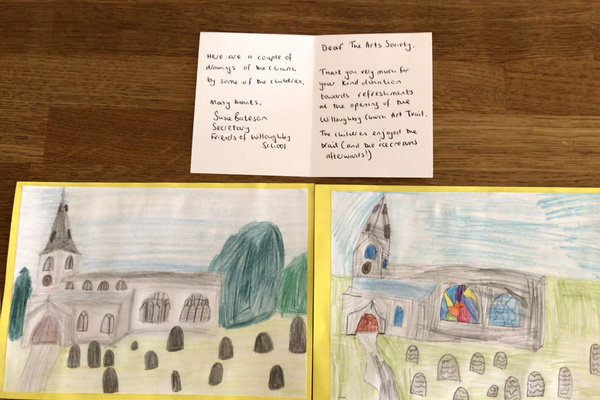 Dear The Arts Society,
Thank you very much for
your kind donation
towards refreshments
at the opening of the
Willoughby Church Art Trail.
The children enjoyed the
trail (and the icecreams
afterwards!)
Here are a couple of
drawings of the church
by some of the children.
Many thanks,
Susie Bateson
Secretary
Friends of Willoughby
School